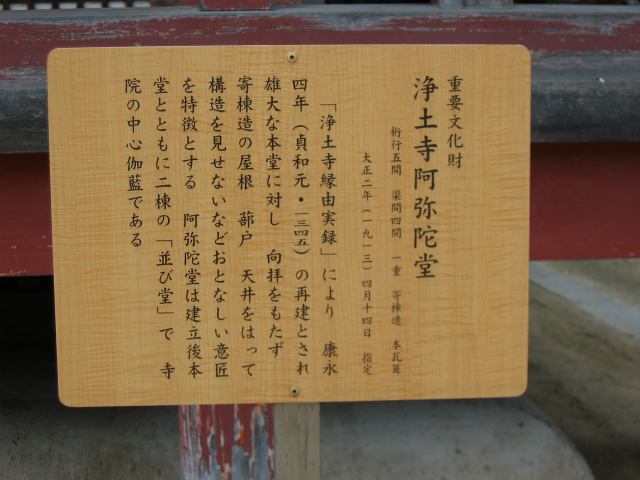 重要文化財
浄土寺阿弥陀堂
桁行五間 梁間四間 一重 寄棟造 本瓦葺
大正二年(一九一三)四月十四日 指定
「浄土寺縁由実録」により 康永
四年(貞和元・一三四五)の再建とされ
雄大な本堂に対し 向拝をもたず
寄棟造の屋根 蔀戸 天井をはって
構造を見せないなどおとなしい意匠
を特徴とする 阿弥陀堂は建立後本
堂とともに二棟の「並び堂」で 寺
院の中心伽藍である